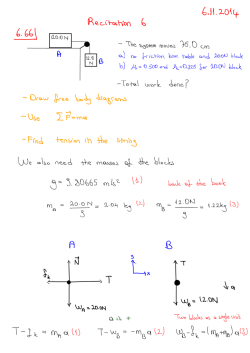 6.11.2014
Recitation 6
6.66)
20.0 N
A
12.0 N
B
- The system moves 75.0 cm
a) no friction btw table and 20.0N block
b) μs = 0.500 and μk = 0.325 for 20.0N block
- Total work done?
- Draw free body diagrams
- Use ΣF = ma
- Find tension in the string
We also need the masses of the blocks
g = 9.80665 m/s² (1) back of the book
mA = 20.0 N / g = 2.04 kg (2) mB = 12.0N / g = 1.22 kg (3)
A
B
N
T
fk
WA = 20.0N
y
x
T
WB = 12.0N
a
Two blocks as a single unit
T - fk = mA a (1) T - WB = -mB a (2) WB - fk = (mA + mB) a (3)